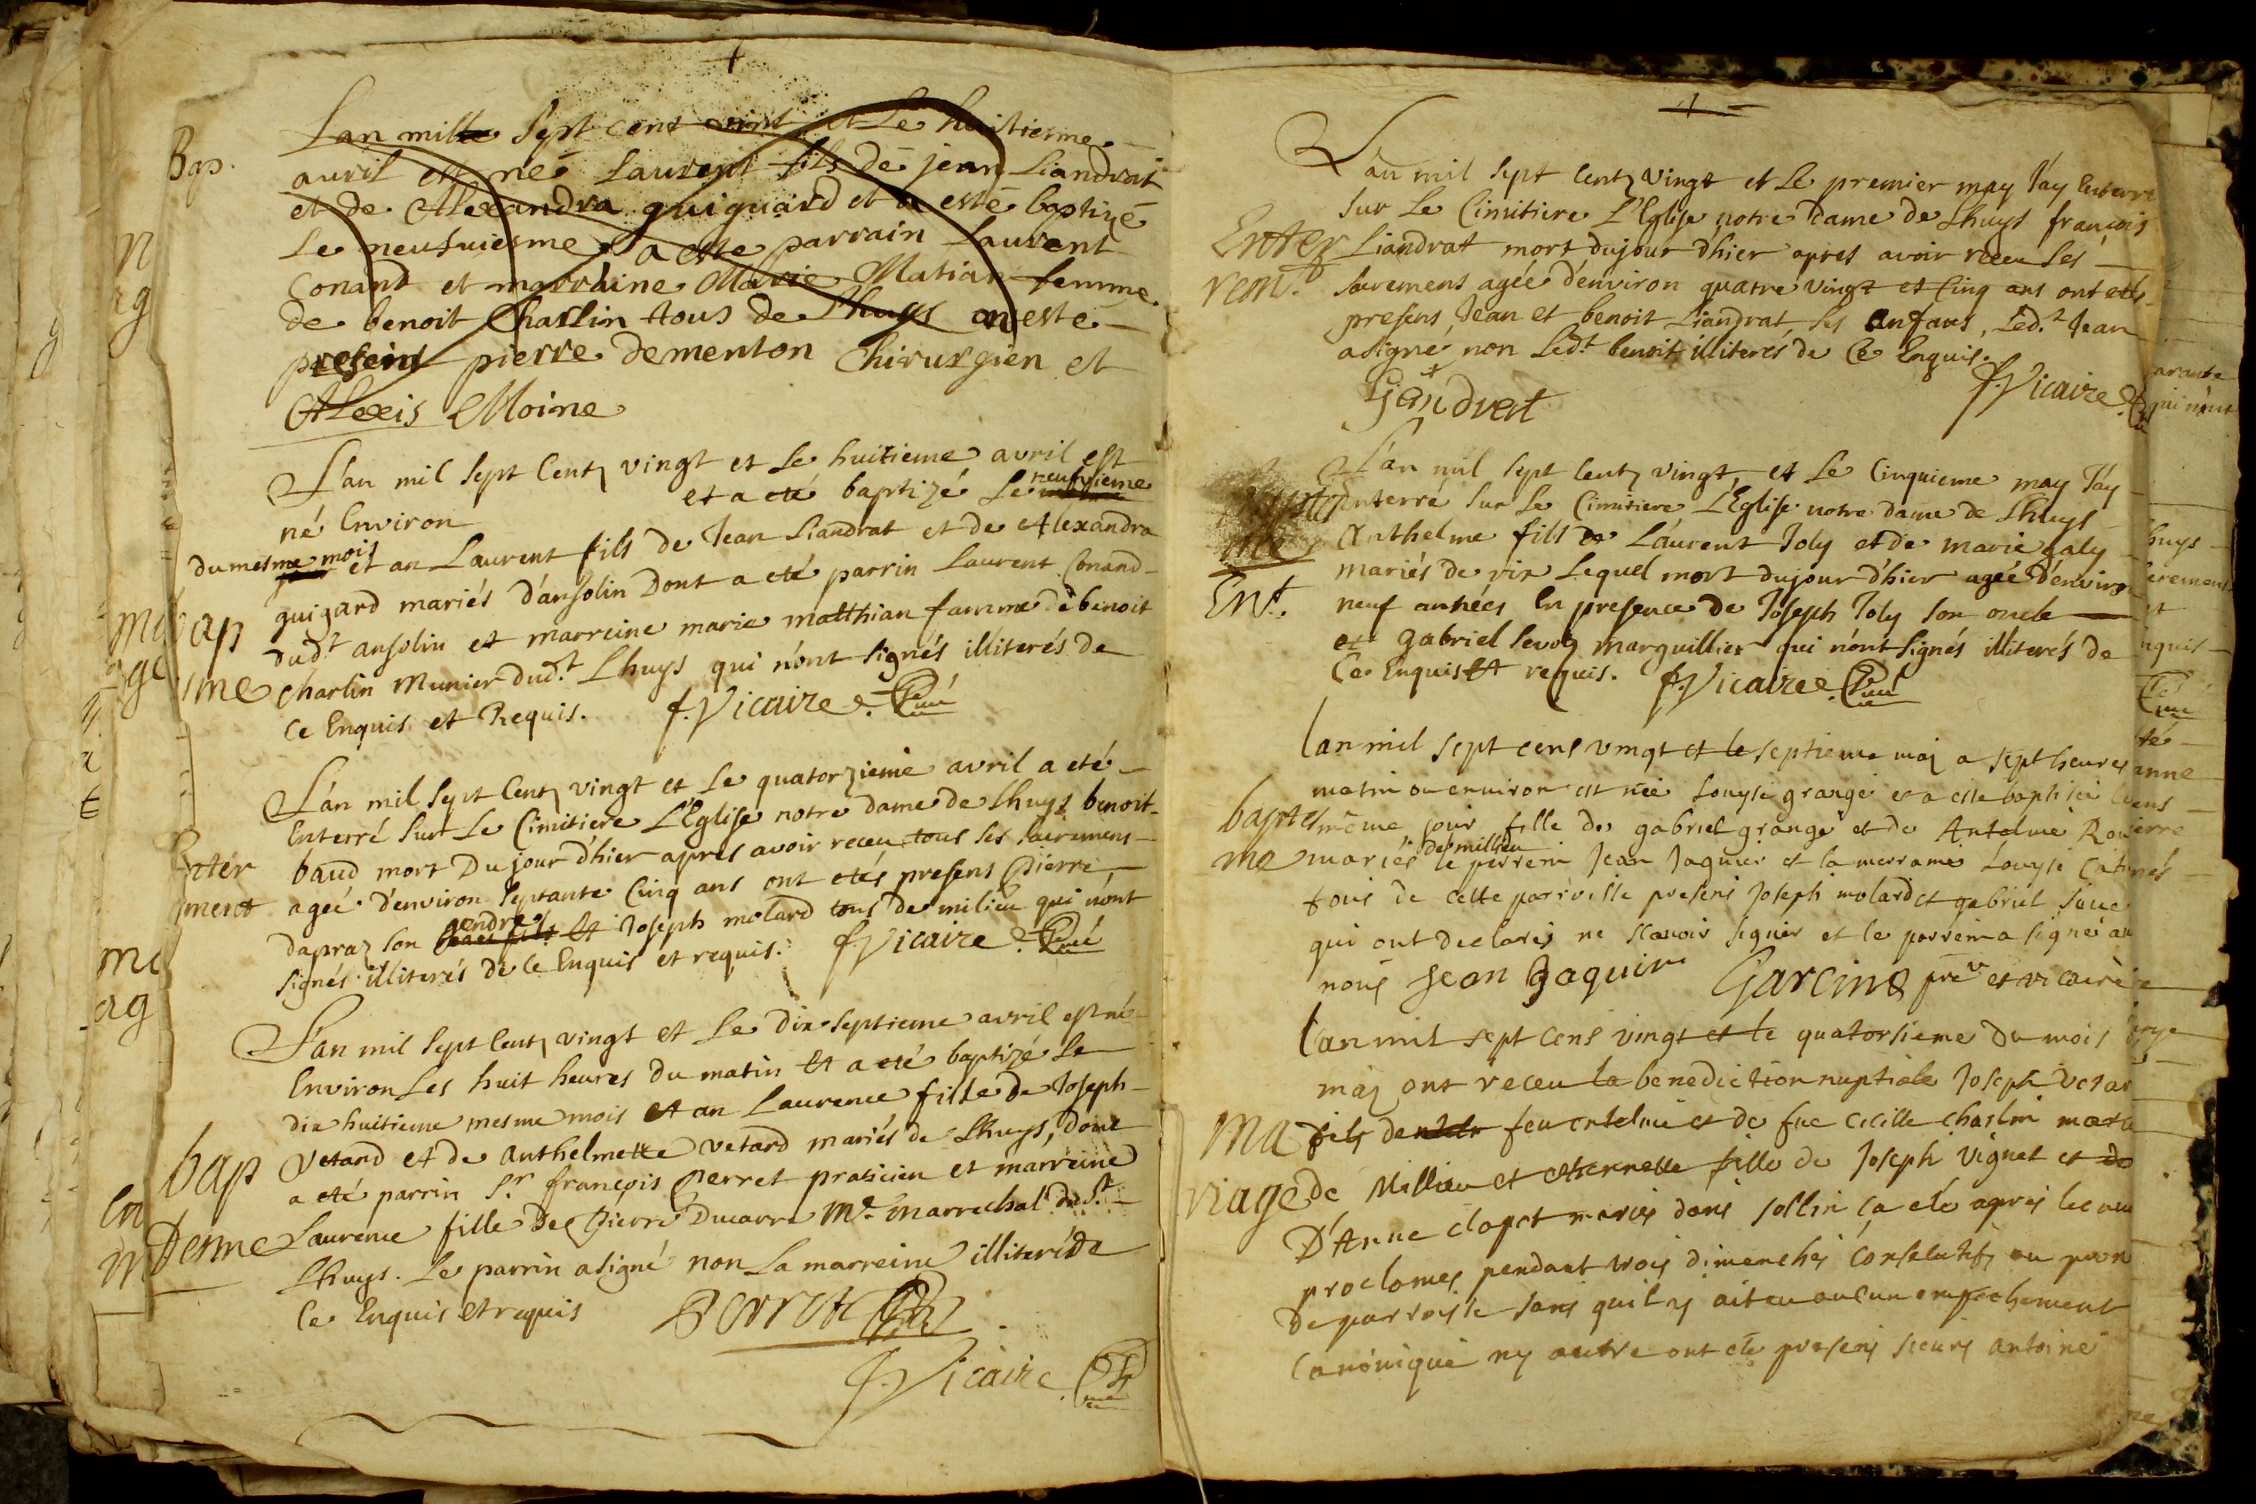 Bap.
Lan mille sept cent vint et Le huitiesme
auril est né Laurent fils de jean Liandrat
et de Alexandra guiguard et a esté baptizé
Le neufuiesme a este parrain Laurent
Conand et marraine Marie Matian femme
de benoit Charlin tous de Lhuys on esté
present pierre dementon Chirurgien et
Alexis Moine
L'an mil sept Cent vingt et Le huitieme avril est
né Environ et a eté baptizé Le neufvieme
du mesme mois et an Laurent fils de Jean Liandrat et de Alexandra
guigard mariés d'ansolin Dont a eté parrin Laurent Conand
bap
tisme
dud.t ansolin et marreine marie matthian famme de benoit
Charlin Munier dud.t Lhuys qui n'ont signés illiterés de
Ce Enquis et Requis. f. Vicaire Curé
L'an mil sept Cent vingt et Le quatorzieme avril a eté
Enterré sur Le Cimitiere L'Eglise notre dame de Lhuys benoit
Enter
ment
baud mort Du jour d'hier apres avoir receu tous ses sacremens
agée d'environ septante Cinq ans ont etés presens Pierre
dapraz son gendre et Joseph molard tous de milieu qui n'ont
signés illiterés de Ce Enquis et requis. f. Vicaire Curé
L'an mil sept Cent vingt et Le dix septieme avril est né
Environ Les huit heures du matin et a eté baptizé Le
dix huitieme mesme mois et an Laurence fille de Joseph
bap
tesme
Vetard et de anthelmette vetard mariés de Lhuys, dont
a eté parrin S.r françois Perret praticien et marreine
Laurence fille de Pierre Ducarre M.e Marrechal dud.t
Lhuys. Le parrin a signé non La marreine illiteré de
Ce Enquis et requis Perret
f. Vicaire Curé
L'an mil sept Cent vingt et Le premier may J'ay Enterré
sur Le Cimitiere L'Eglise notre dame de Lhuys françois
Enter
rem.t
Liandrat mort du jour d'hier apres avoir receu ses
sacremens agée d'environ quatre vingt et Cinq ans ont etés
presens Jean et benoit Liandrat ses Enfans, Led.t Jean
a signé non Led.t benoit illiteres de Ce Enquis.
f. Vicaire Curé
L'an mil sept Cent vingt, et Le Cinquieme may J'ay
Enterré sur Le Cimitiere L'Eglise notre dame de Lhuys
Anthelme fils de Laurent Joly et de marie galy
Ent.
mariés de vix Lequel mort du jour d'hier agée d'environ
neuf années En presence de Joseph Joly son oncle
et gabriel Marguillier qui n'ont signés illiterés de
Ce Enquis et requis. f. Vicaire Curé
lan mil sept cens vingt et le septieme maj a sept heures
matin ou environ est née Louyse grange et a este baptisée
baptes
me
même jour fille de gabriel grange et de Antelme
mariés de millieu le perrein Jean Jaquier et la merraine Louyse
tous de cette parroisse presens Joseph molard et gabriel
qui ont declarés ne scavoir signer et le parrein a signé
nous Jean Jaquin Garcin pre et vicaire
lan mil sept cens vingt et le quatorsieme du mois
maj ont receu la benediction nuptiale Joseph
Ma
riage
fils de feu antelme et de fue cecille charlin
de Millieu et fille de Joseph Vignet et de
D'Anne clapet mariés dans sollin ca eté apres
proclames pendant trois dimenches conseecutifs au
de parroisse sans quil y ait eu aucun empechement
canonique ny autre ont eté presens sieurs antoine